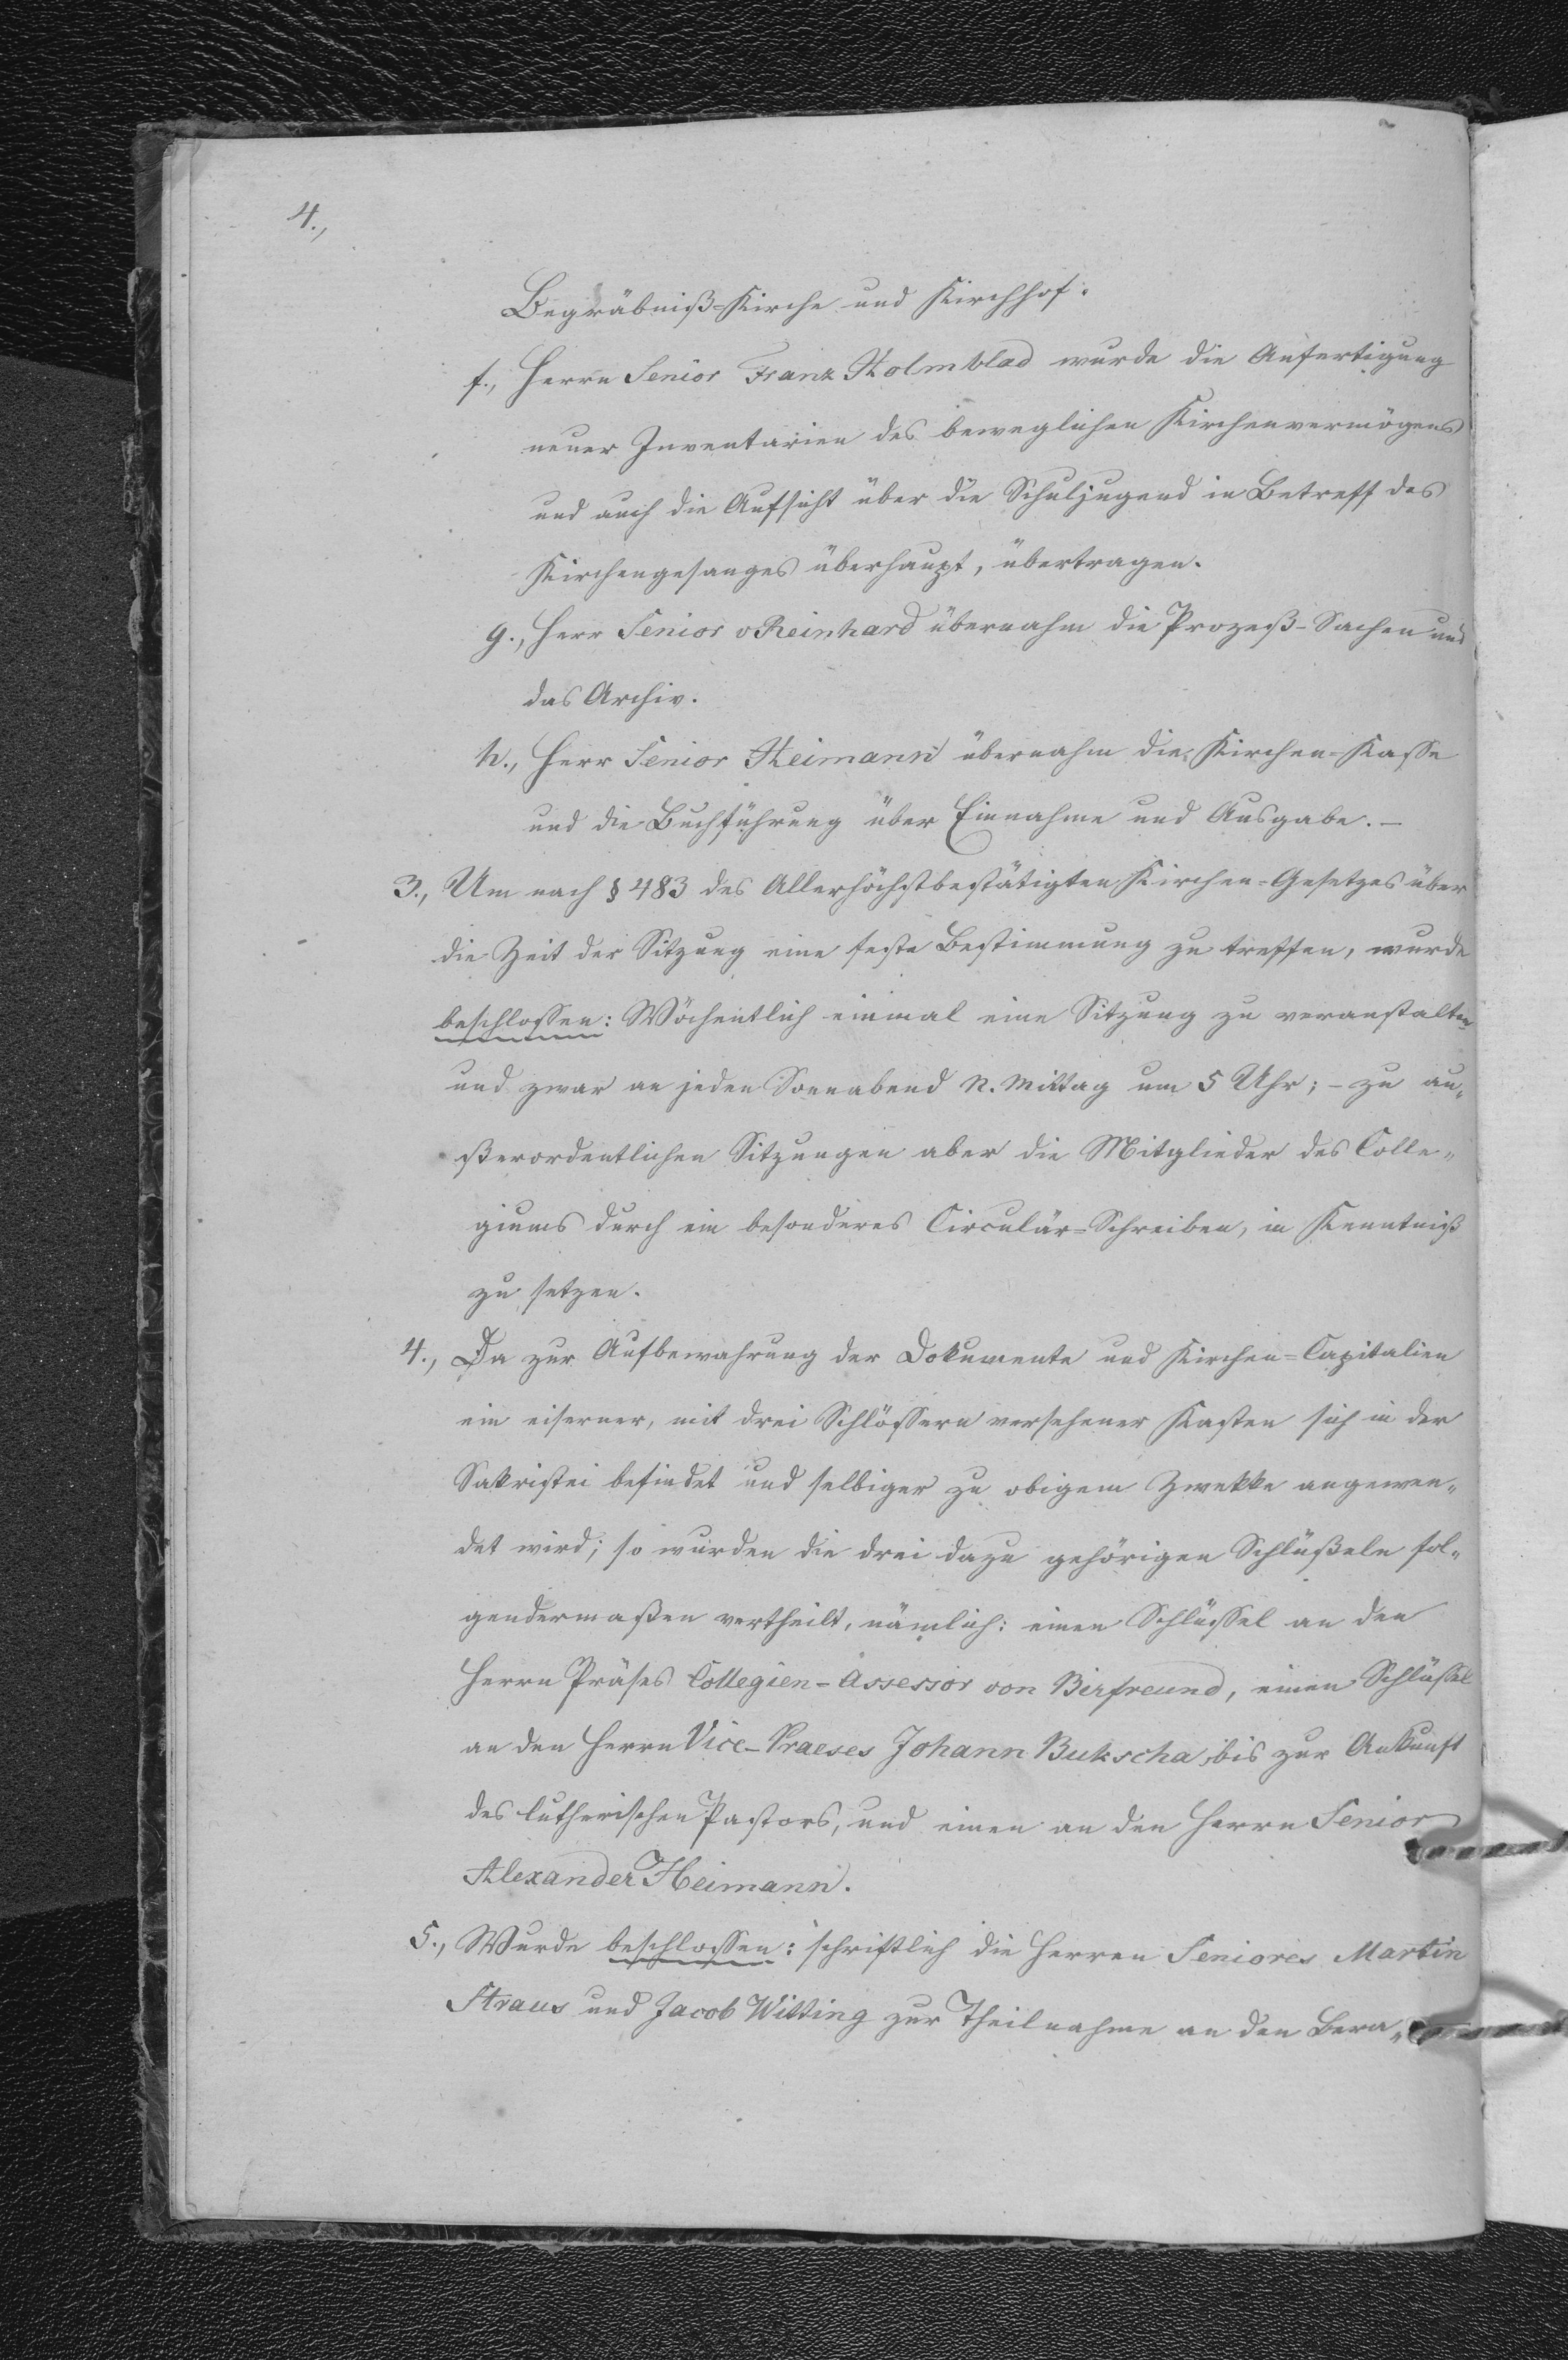 4.,
Begräbniß-Kirche und Kirchhof.
f., Herrn Senior Franz Holmblad wurde die Anfertigung
neuer Inventarien des beweglichen Kirchenvermögens
und auch die Aufsicht über die Schuljugend in Betreff des
Kirchengesanges überhaupt, übertragen.
g., Herr Senior v Reinhard übernahm die Prozeß-Sachen und
das Archiv.
h., Herr Senior Heimann übernahm die Kirchen-Kasse
und die Buchführung über Einnahme und Ausgabe. –
3., Um nach § 483 des Allerhöchstbestätigten Kirchen-Gesetzes über
die Zeit der Sitzung eine feste Bestimmung zu treffen, wurde
beschlossen: Wöchentlich einmal eine Sitzung zu veranstalten
und zwar an jeden Sonnabend N. Mittag um 5 Uhr; – zu au„
ßerordentlichen Sitzungen aber die Mitglieder des Colle„
giums durch ein besonderes Circulär-Schreiben, in Kenntniß
zu setzen.
4., Da zur Aufbewahrung der Dokumente und Kirchen-Capitalien
ein eiserner, mit drei Schlössern versehener Kasten sich in der
Sakristei befindet und selbiger zu obigem Zwekke angewen„
det wird; so wurden die drei dazu gehörigen Schlüßeln fol„
gendermaßen vertheilt, nämlich: einen Schlüssel an den
Herrn Präses Collegien-Assessor von Birfreund, einen Schlüssel
an den Herrn Vice-Praeses Johann Bukscha, bis zur Ankunft
des lutherischen Pastors, und einen an den Herrn Senior
Alexander Heimann.
5., Wurde beschlossen: schriftlich die Herren Seniores Martin
Straus und Jacob Witting zur Theilnahme an den Bera„